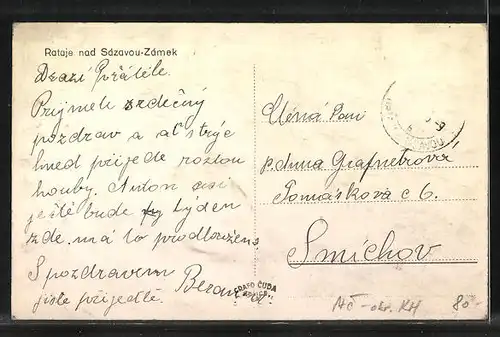 Rataje nad Sázavou-Zámek
Drazí Přátelé.
Prijmete srdečný
pozdrav a ať strýc
hned přijede rostou
houby. Anton asi
ještě bude týden
zde. má to prodlouženo
S pozdravem
jistě přijeďte.
Ctěná Paní
p. Anna Grafnetrová
Tomáškova c 6.
Smíchov
GRAFO ČUDA
HOLICE
MČ - okr. KH
80.-